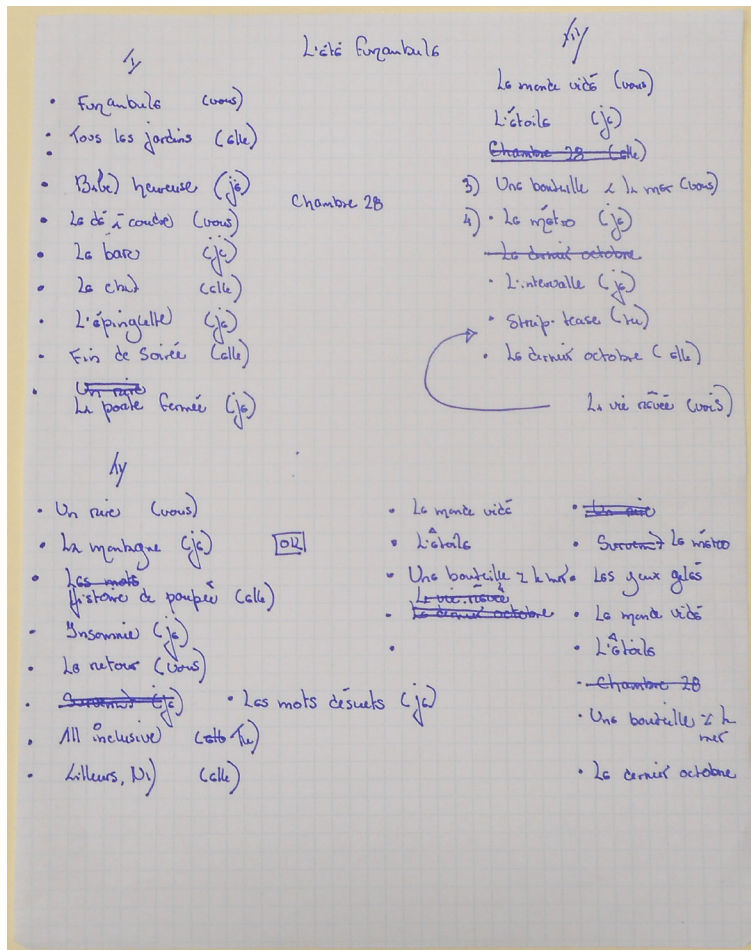 L'été funambule
I
• Funambule (vous)
• Tous les jardins (elle)
• heureuse (je)
• Le dé à coudre (vous)
• Le banc (je)
• Le chat (elle)
• L'épinglette (je)
• Fin de soirée (elle)
• Un rire
La porte fermée (je)
Chambre 28
III
Le monde vidé (vous)
L'étoile (je)
Chambre 28 (elle)
3) Une bouteille à la mer (vous)
4) • Le métro (je)
Le dernier octobre
• L'intervalle (je)
• Strip-tease (tu)
• Le dernier octobre (elle)
La vie rêvée (vous)
II
• Un rire (vous)
• La montagne (je) OK
• Les mots
Histoire de poupée (elle)
• Insomnie (je)
• Le retour (vous)
• Survenir (je) • Les mots désuets (je)
• All inclusive (elle Tu)
• Lilleurs, (elle)
• Le monde vidé
• L'étoile
• Une bouteille à la mer
La vie rêvée
• Le dernier octobre
•
• Un rire
• Survenir Le métro
• Les yeux gelés
• Le monde vidé
• L'étoile
- Chambre 28
• Une bouteille à la
mer
• Le dernier octobre